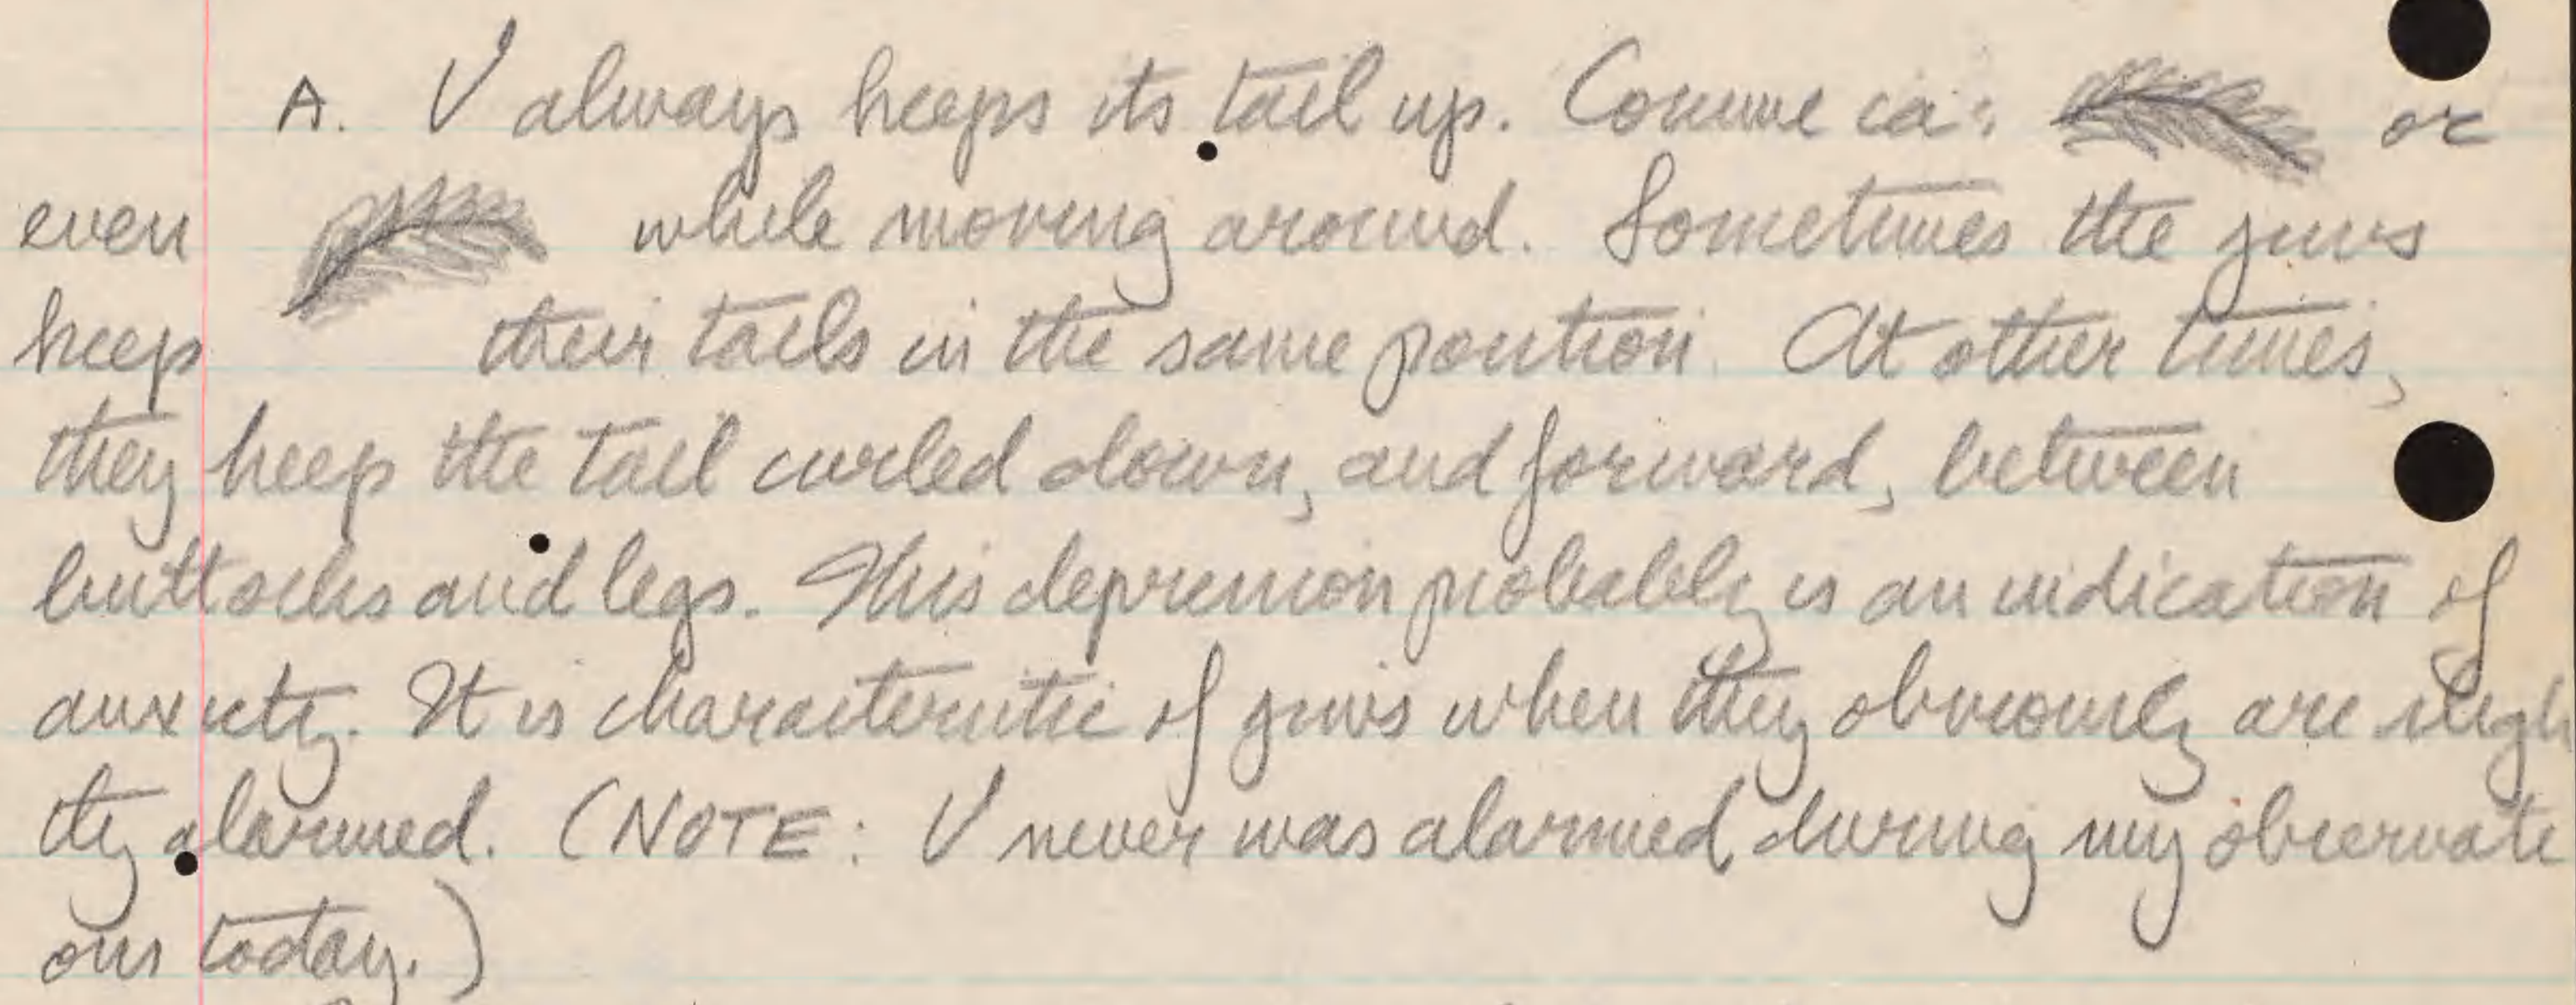 A. V always keeps its tail up. Comme ca: or
even while moving around. Sometimes the juvs
keep their tails in the same position. At other times,
they keep the tail curled down, and forward, between
buttocks and legs. This depression probably is an indication of
anxiety. It is characteristic of juvs when they obviously are sligh
tly alarmed. (NOTE: V never was alarmed, during my observati
ons today.)